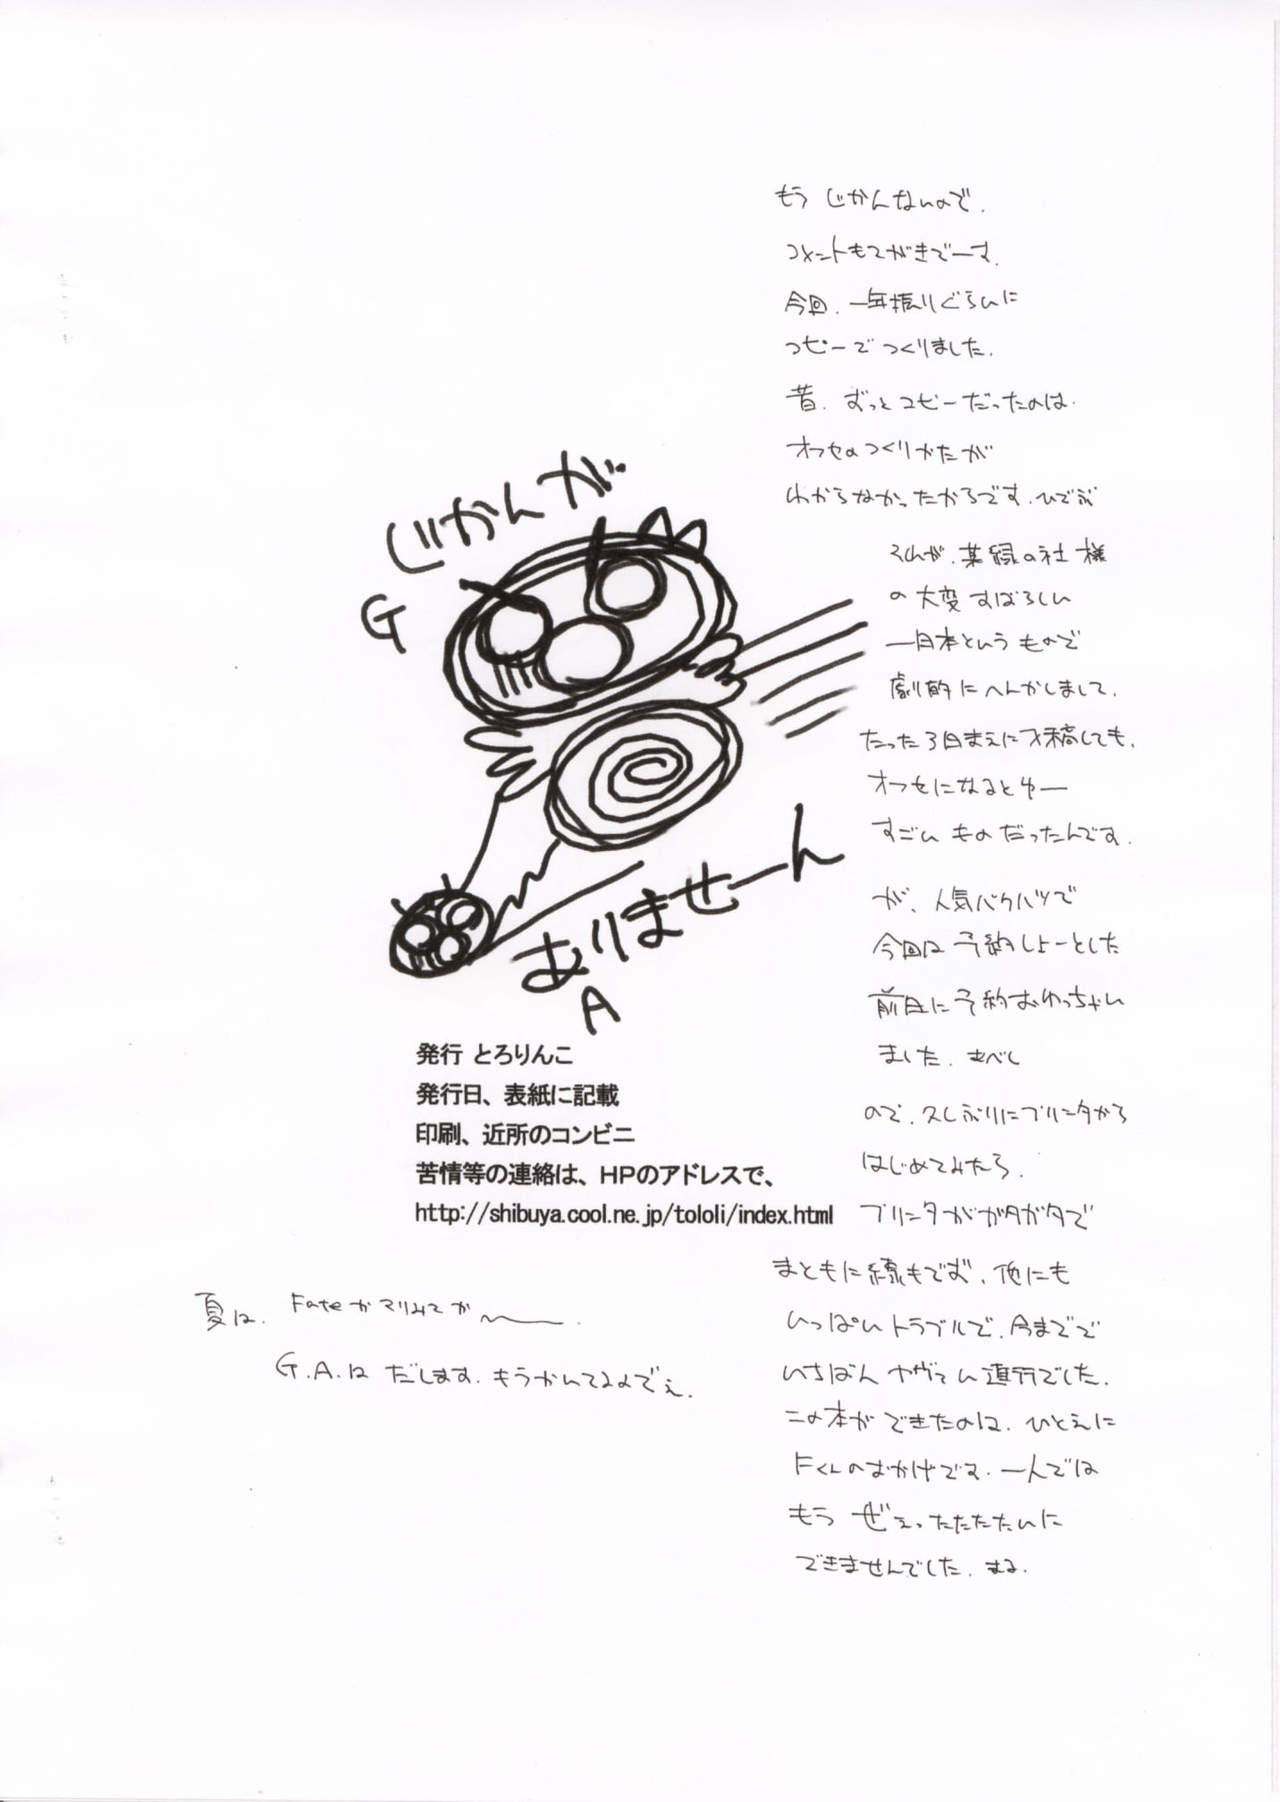 もう じかんないので.
コメントもてがきでーす.
今回. 一年振りぐらいに
コピーでつくりました.
昔. ずっとコピーだったのは.
オフセのつくりかたが
わからなかったからです. ひでぶ
それが. 葉緑の社様
の大変すばらしい
一日本という もので
劇的にへんかしまして.
たった3日まえに入稿しても.
オフセになるとゆー
すごい ものだったんです.
が、人気バクハツで
今回は予約しよーとした
前日に予約おわっちゃい
ました. あべし
ので. 久しぶりにプリンタから
はじめてみたら.
プリンタがガタガタで
まともに線もでず. 他にも
いっぱいトラブルで. 今までで
いちばんヤヴァい進行でした.
この本ができたのは. ひとえに
Fくんのおかげです. 一人では
もう ぜぇったたたたいに
できませんでした. まる.
じかんが
G
ありませーん
A
発行 とろりんこ
発行日、表紙に記載
印刷、近所のコンビニ
苦情等の連絡は、HPのアドレスで、
http://shibuya.cool.ne.jp/tololi/index.html
夏は. Fateかマリみてか〜.
G.A.は だします. もうかいてるよでぇ.